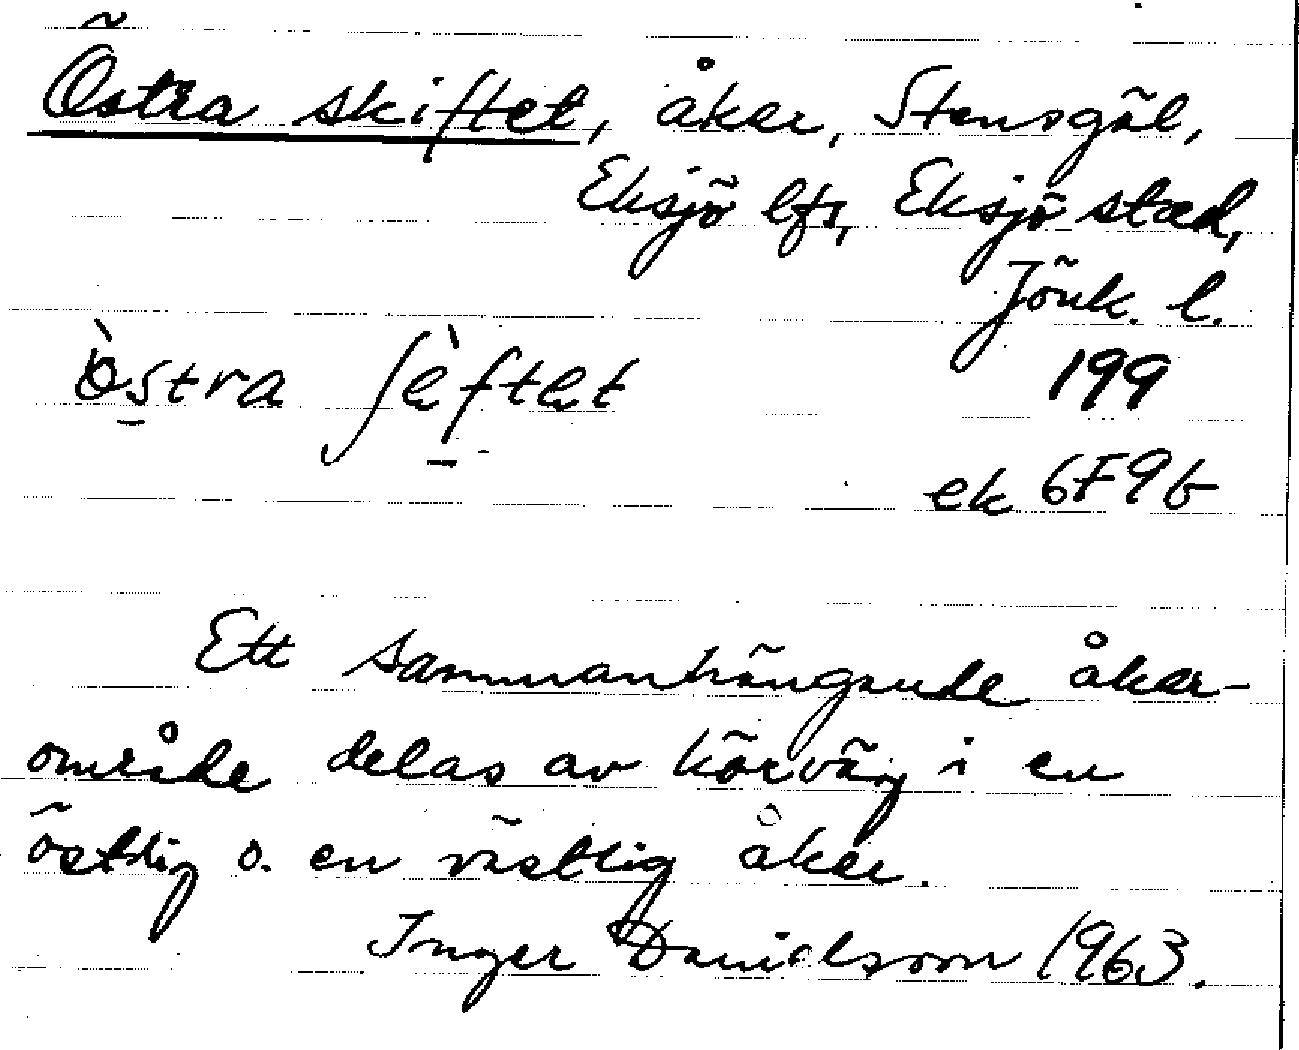 Östra skiftet, åker, Stensgöl,
Eksjö lfs, Eksjö stad,
Jönk. l.
ὸ̱stra ʃè̱ftet
199
ek 6F9b
Ett sammanhängande åker-
område delas av körväg i en
östlig o. en västlig åker.
Inger Danielsson 1963.